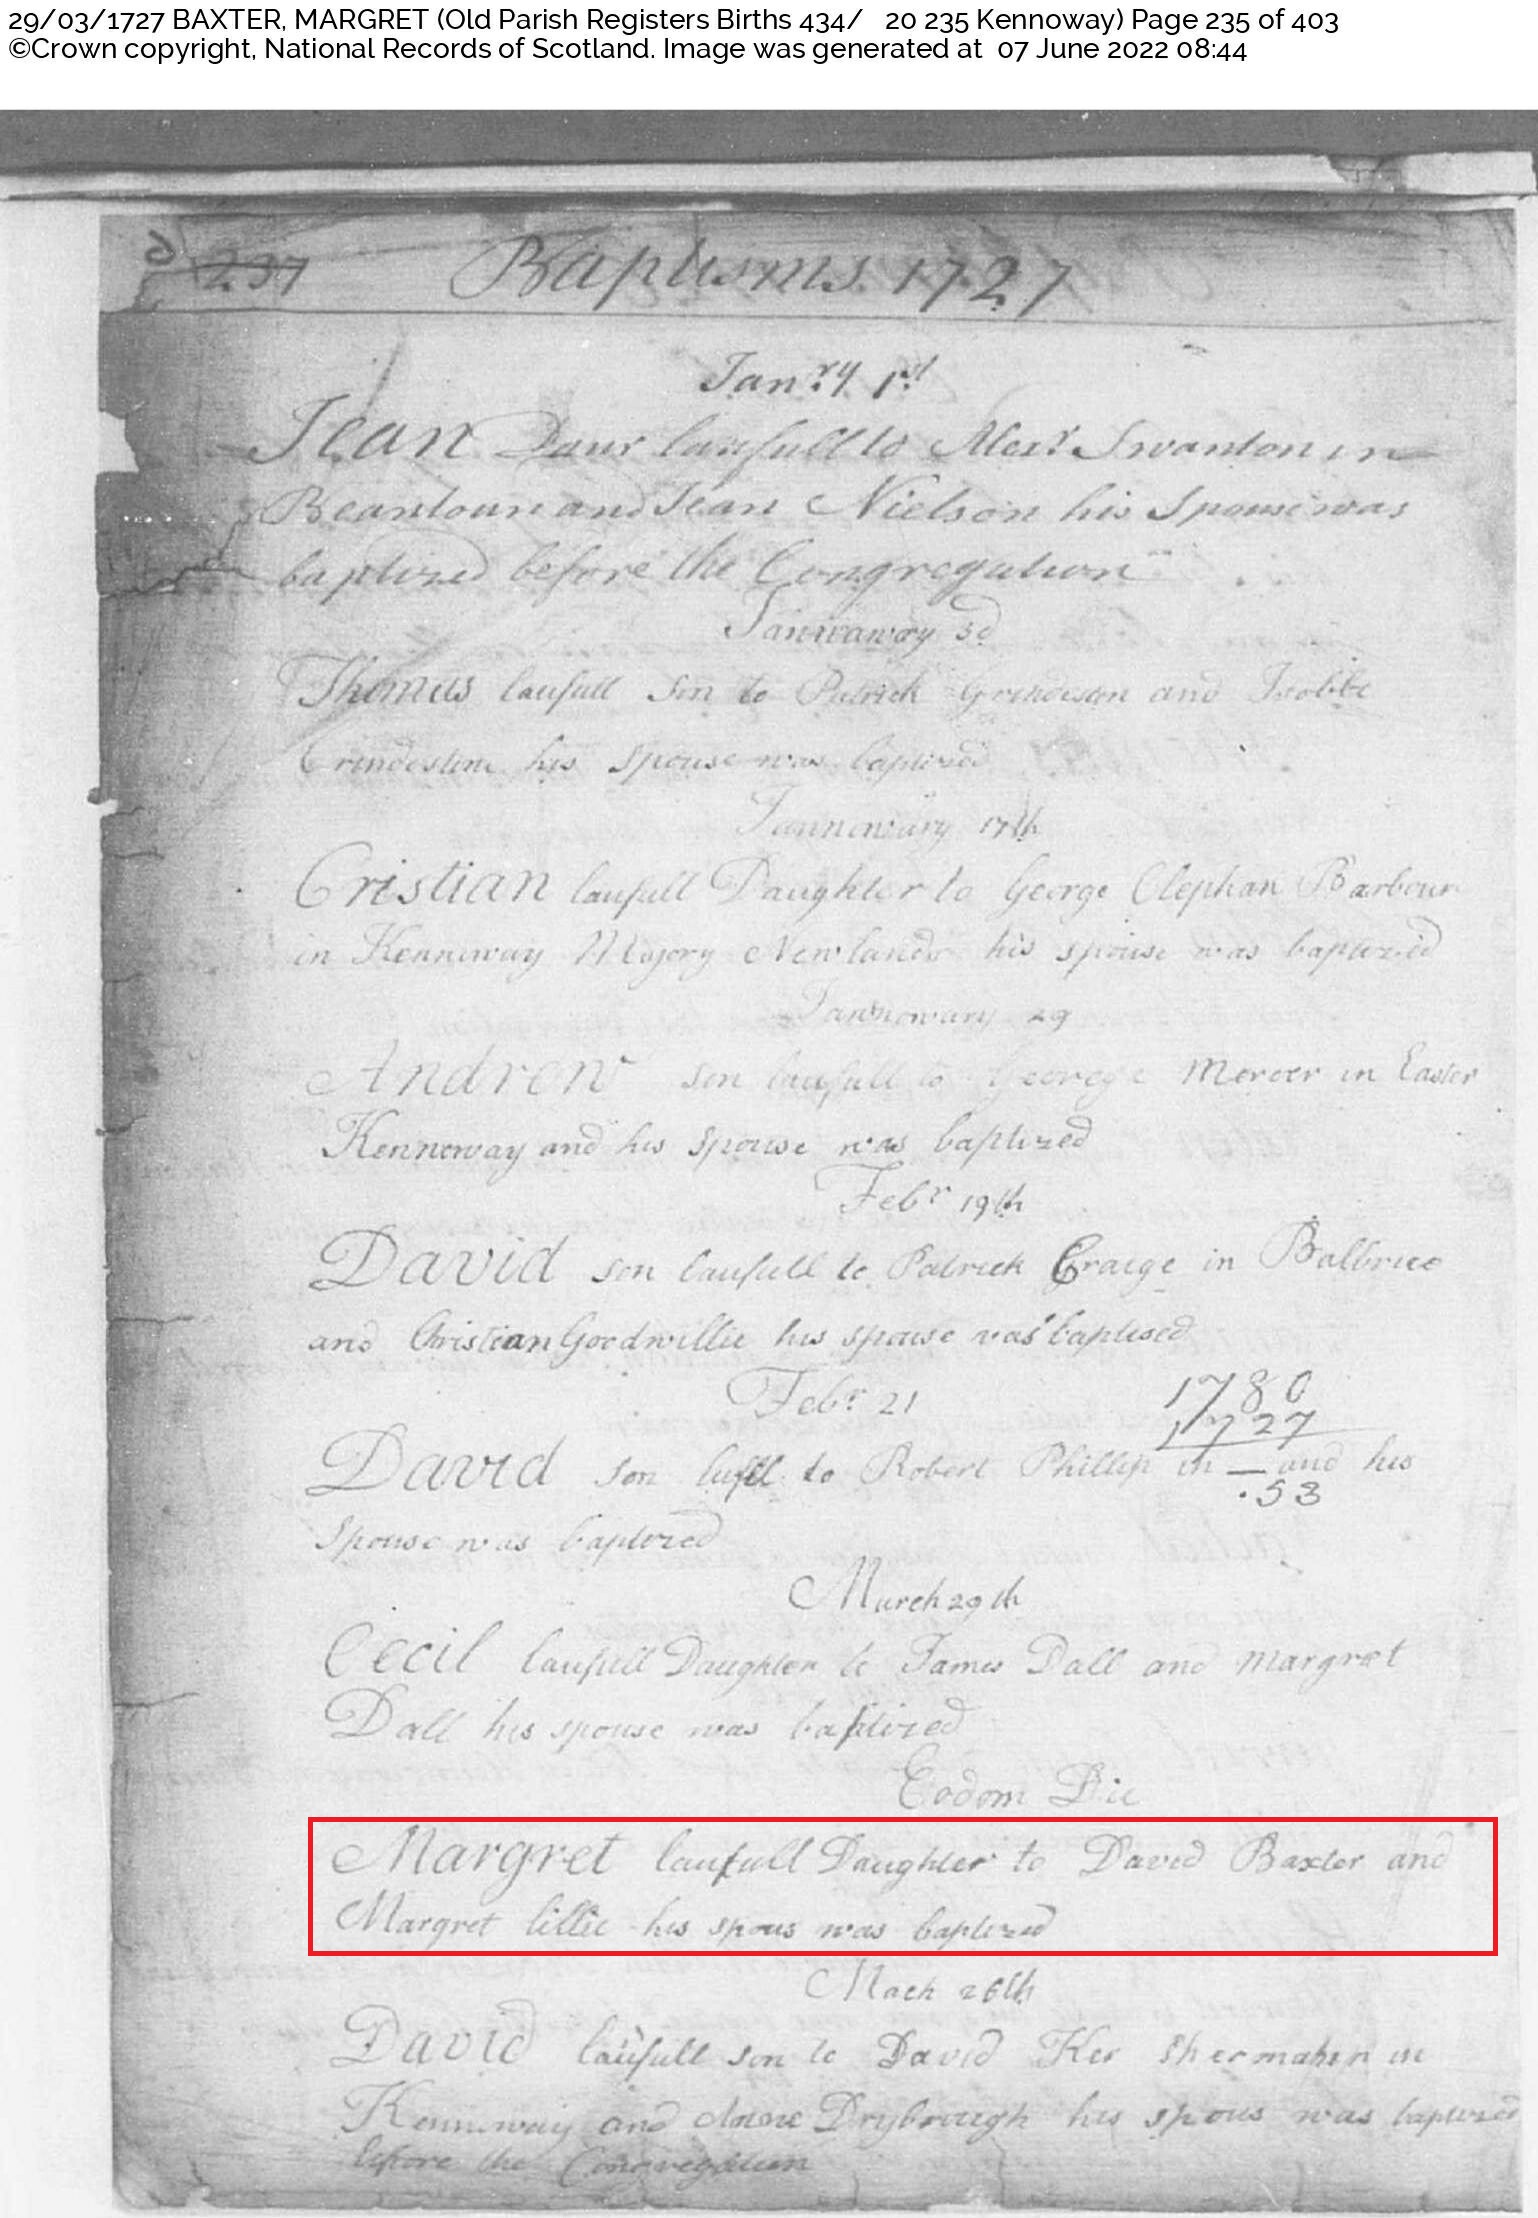 29/03/1727 BAXTER, MARGRET (Old Parish Registers Births 434/ 20 235 Kennoway) Page 235 of 403
©Crown copyright, National Records of Scotland. Image was generated at 07 June 2022 08:44
237 Baptisms 1727
Janry 1st
Jean Daur laufull to Alexr Swanton in
Beantoun and Jean Nielson his Spouse was
baptized before the Congregation
3d
Thomas laufull Son to Patrick and
his Spouse was baptized
17th
Cristian laufull Daughter to George Clephan Barbour
in Kennoway Majory Newlands his spouse was baptized
29
Andrew son laufull to George Mercer in Easter
Kennoway and his Spouse was baptized
Febr 19th
David son laufull to Patrick Craige in
and Christian Goodwillie his spouse was baptised
Febr 21
1780
1727
David son to Robert Phillip in — and his
.53
Spouse was baptized
March 29th
Cecil laufull Daughter to James Dall and Margret
Dall his spouse was baptized
Eodom Die
Margret laufull Daughter to David Baxter and
Margret lillie his spous was baptized
Mach 26th
David laufull son to David Ker in
and Drybrough his spous was baptized
before the Congregation